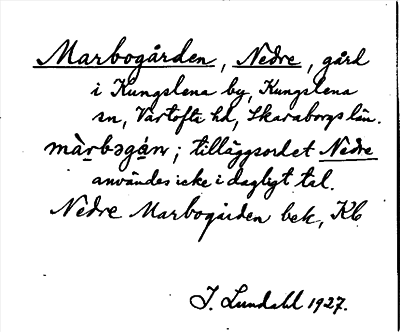 Marbogården, Nedre, gård
i Kungslena by, Kungslena
sn, Vartofta hd, Skaraborgs län.
màrbəgá̤n; tilläggsordet Nedre
användes icke i dagligt tal.
Nedre Marbogården bek, Kb
I. Lundahl 1927.